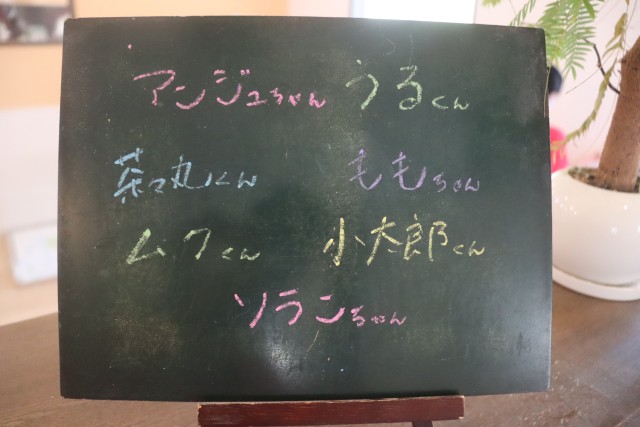 アンジュちゃん うるくん
菜々丸くん ももちゃん
ムクくん 小太郎くん
ソランちゃん